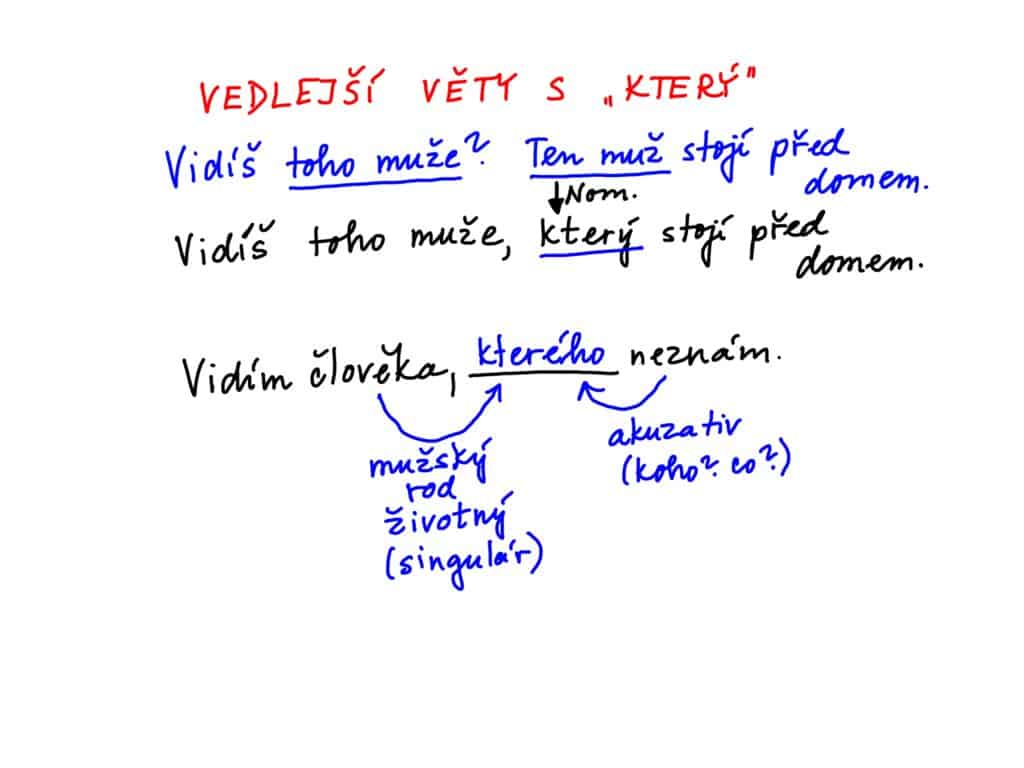 VEDLEJŠÍ VĚTY S „KTERÝ"
Vidíš toho muže? Ten muž stojí před
domem.
Nom.
Vidíš toho muže, který stojí před
domem.
Vidím člověka, kterého neznám.
mužský
rod
životný
(singulár)
akuzativ
(koho? co?)